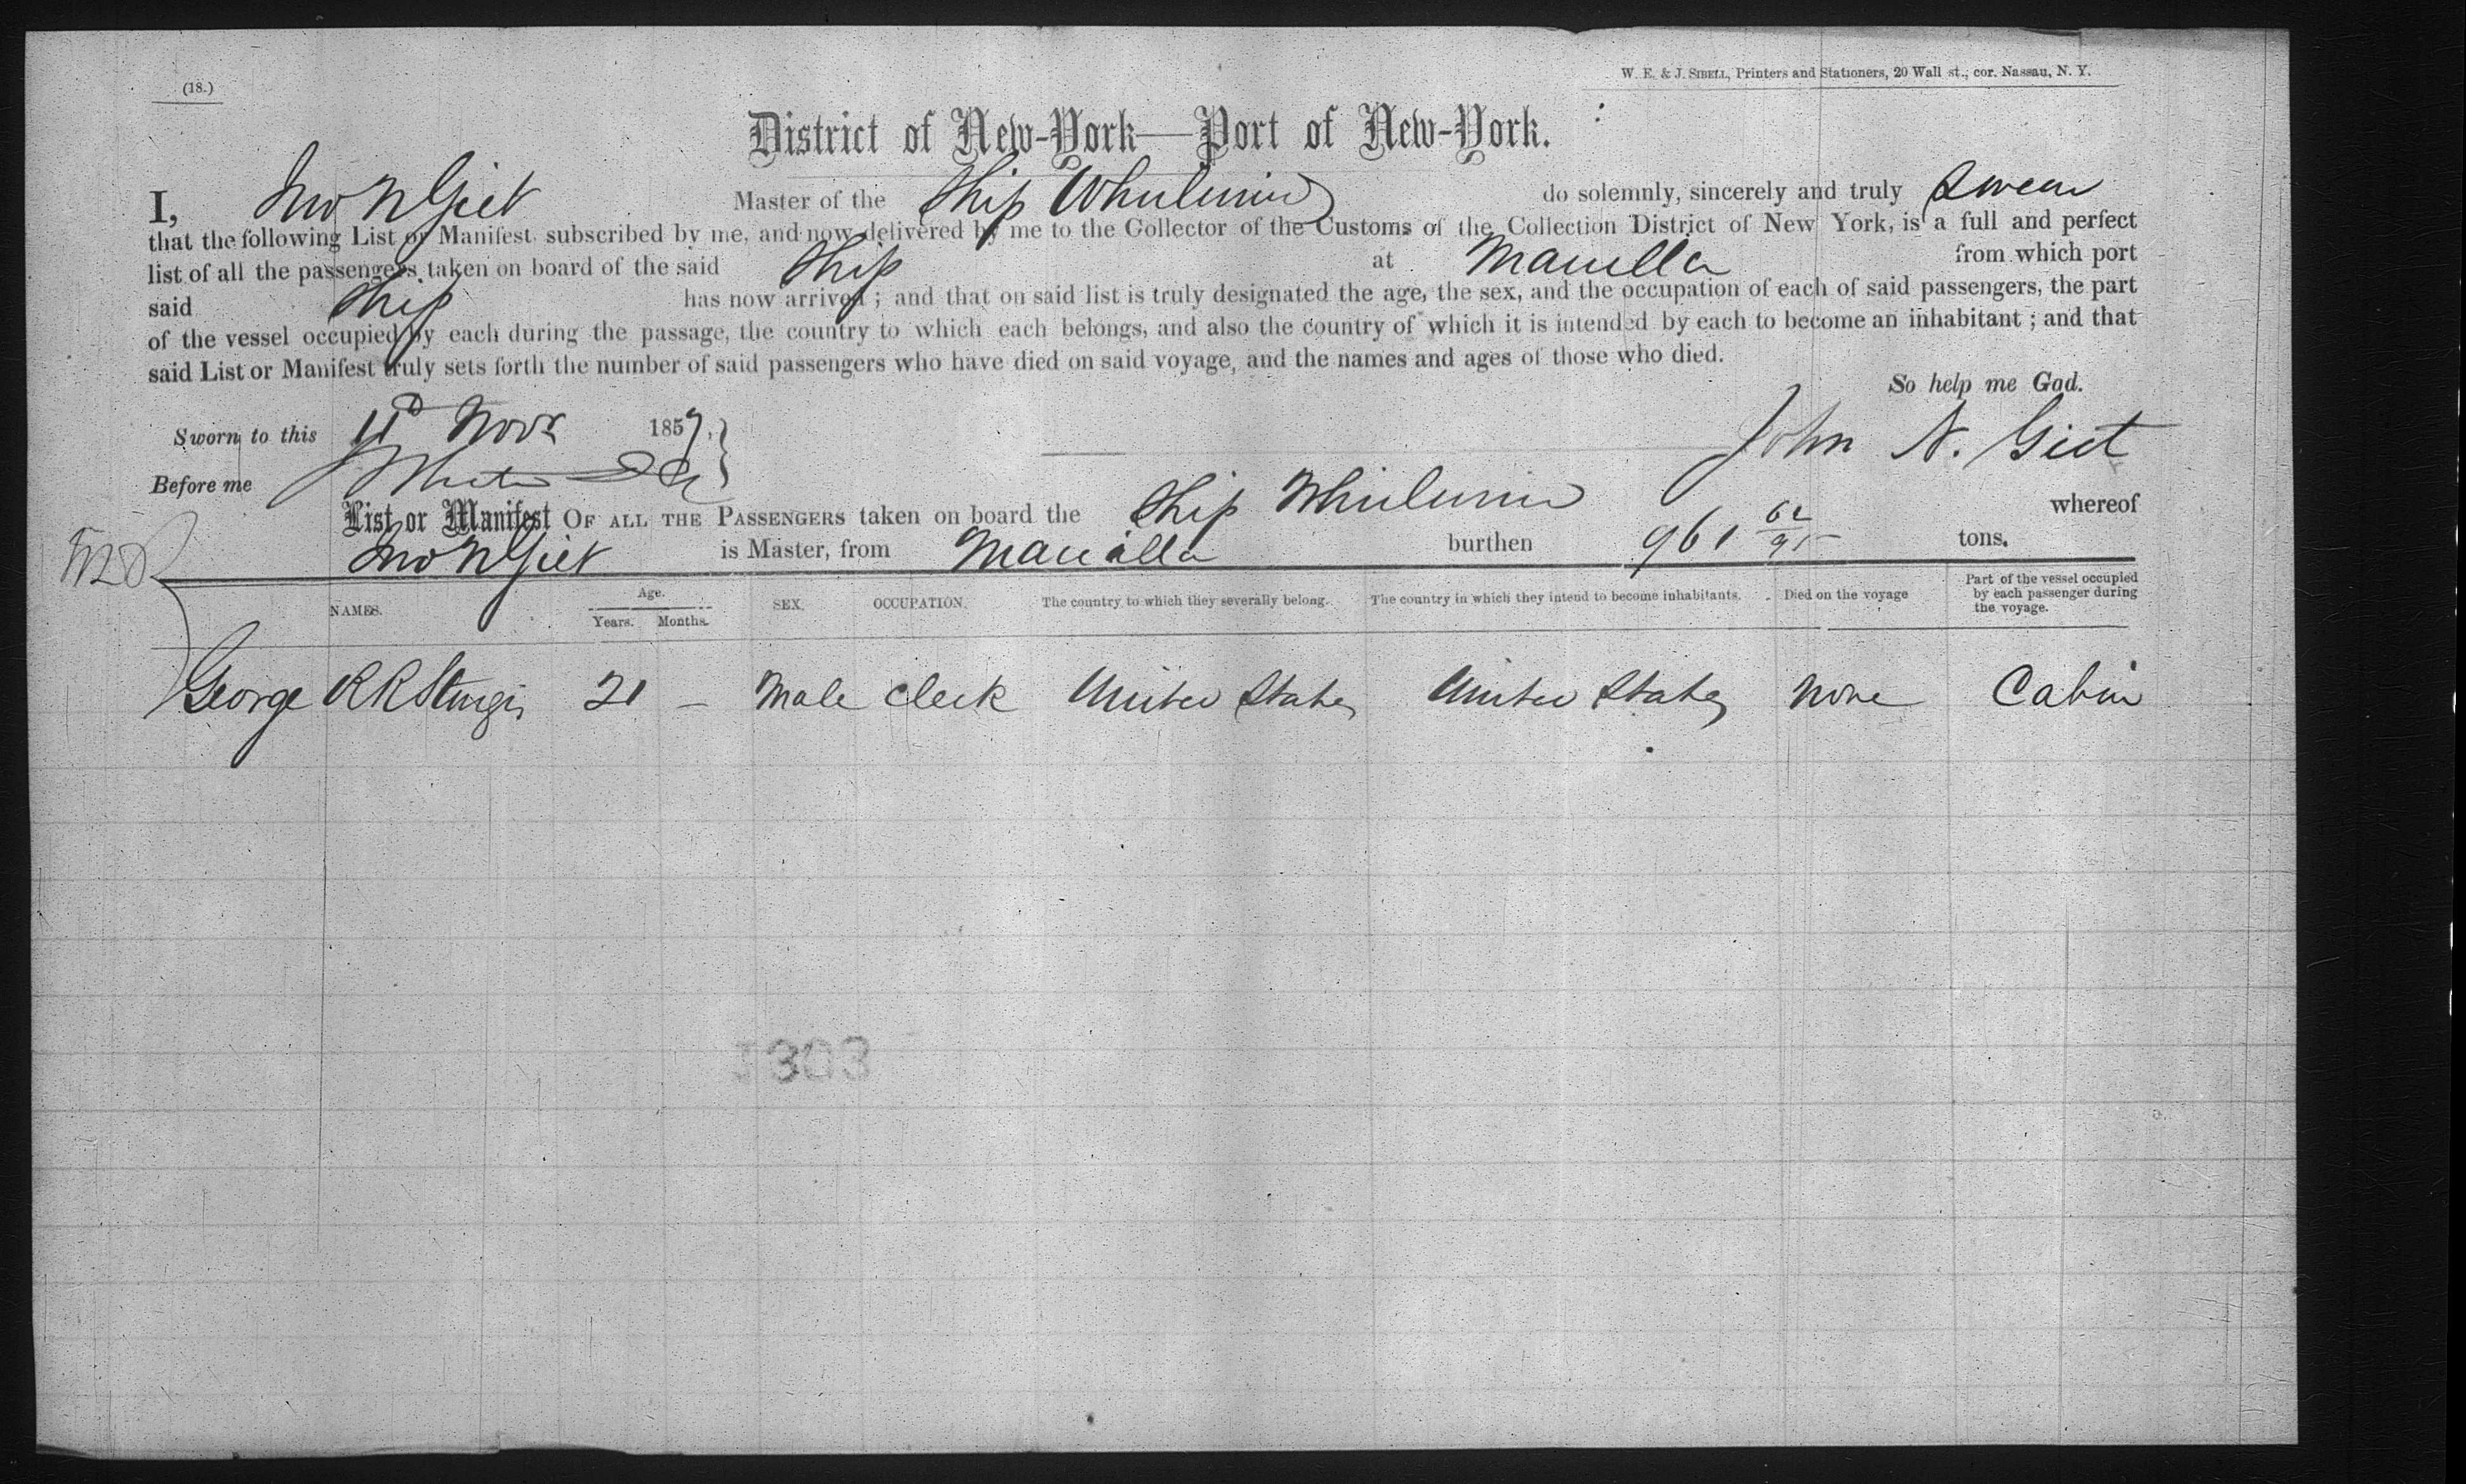 (18.)
W. E. & J. SIBELL, Printers and Stationers, 20 Wall st., cor. Nassau, N. Y.
District of New-York—Port of New-York.
I, Jno N Giet Master of the Ship do solemnly, sincerely and truly Swear
that the following List or Manifest, subscribed by me, and now delivered by me to the Collector of the Customs of the Collection District of New York, is a full and perfect
list of all the passengers taken on board of the said Ship at Manilla from which port
said Ship has now arrived; and that on said list is truly designated the age, the sex, and the occupation of each of said passengers, the part
of the vessel occupied by each during the passage, the country to which each belongs, and also the country of which it is intended by each to become an inhabitant; and that
said List or Manifest truly sets forth the number of said passengers who have died on said voyage, and the names and ages of those who died.
So help me God.
Sworn to this 11 Novr 1857.
John N. Giet
Before me
List or Manifest OF ALL THE PASSENGERS taken on board the Ship whereof
Jno N Giet is Master, from Manilla burthen 961 62/95 tons.
NAMES. Age. Years. Months. SEX. OCCUPATION. The country to which they severally belong. The country in which they intend to become inhabitants. Died on the voyage Part of the vessel occupied by each passenger during the voyage.
George R R Sturgis 21 – Male Clerk United States United States None Cabin
1303